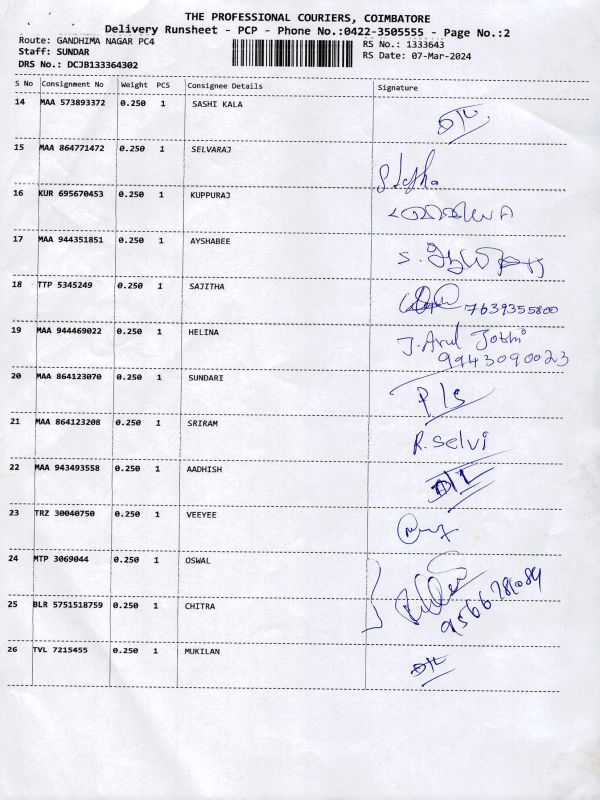 THE PROFESSIONAL COURIERS, COIMBATORE
Delivery Runsheet - PCP - Phone No.:0422-3505555 - Page No.:2
Route: GANDHIMA NAGAR PC4 RS No.: 1333643
Staff: SUNDAR RS Date: 07-Mar-2024
DRS No.: DCJB133364302
S No Consignment No Weight PCS Consignee Details Signature
14 MAA 573893372 0.250 1 SASHI KALA
15 MAA 864771472 0.250 1 SELVARAJ
16 KUR 695670453 0.250 1 KUPPURAJ
17 MAA 944351851 0.250 1 AYSHABEE
18 TTP 5345249 0.250 1 SAJITHA 7639355800
19 MAA 944469022 0.250 1 HELINA J. Arul
9943090023
20 MAA 864123070 0.250 1 SUNDARI P/S
21 MAA 864123208 0.250 1 SRIRAM R. Selvi
22 MAA 943493558 0.250 1 AADHISH
23 TRZ 30040750 0.250 1 VEEYEE
24 MTP 3069044 0.250 1 OSWAL
25 BLR 5751518759 0.250 1 CHITRA
26 TVL 7215455 0.250 1 MUKILAN